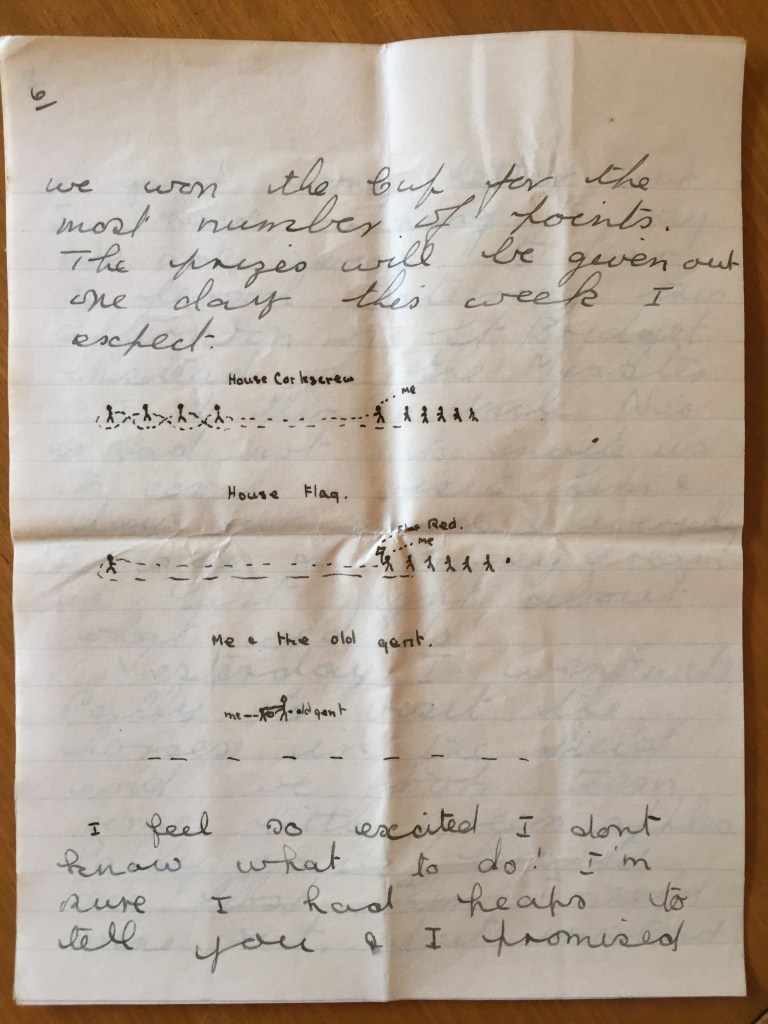 6
we won the Cup for the
most number of points.
The prizes will be given out
one day this week I
expect.
House Corkscrew
me
House Flag.
Red.
me
Me & the old gent.
me old gent
I feel so excited I dont
know what to do! I'm
sure I had heaps to
tell you & I promised